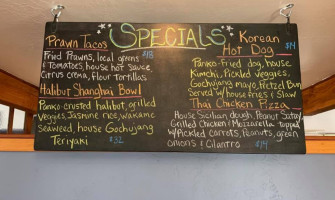 SPECIALS
Prawn Tacos $18
Fried Prawns, local greens
& Tomatoes, house hot sauce
Citrus crema, flour tortillas
Halibut Shanghai Bowl
Panko-crusted halibut, grilled
veggies, Jasmine rice, wakame
seaweed, house Gochujang
Teriyaki $32
Korean $14
Hot Dog
Panko-Fried dog, house
Kimchi, Pickled Veggies,
Gochujang mayo, Pretzel Bun
Served w/ house fries & Slaw
Thai Chicken Pizza
House Sicilian dough, Peanut Satay
Grilled Chicken & Mozzarella topped
w/ Pickled carrots, Peanuts, green
onions & Cilantro $14